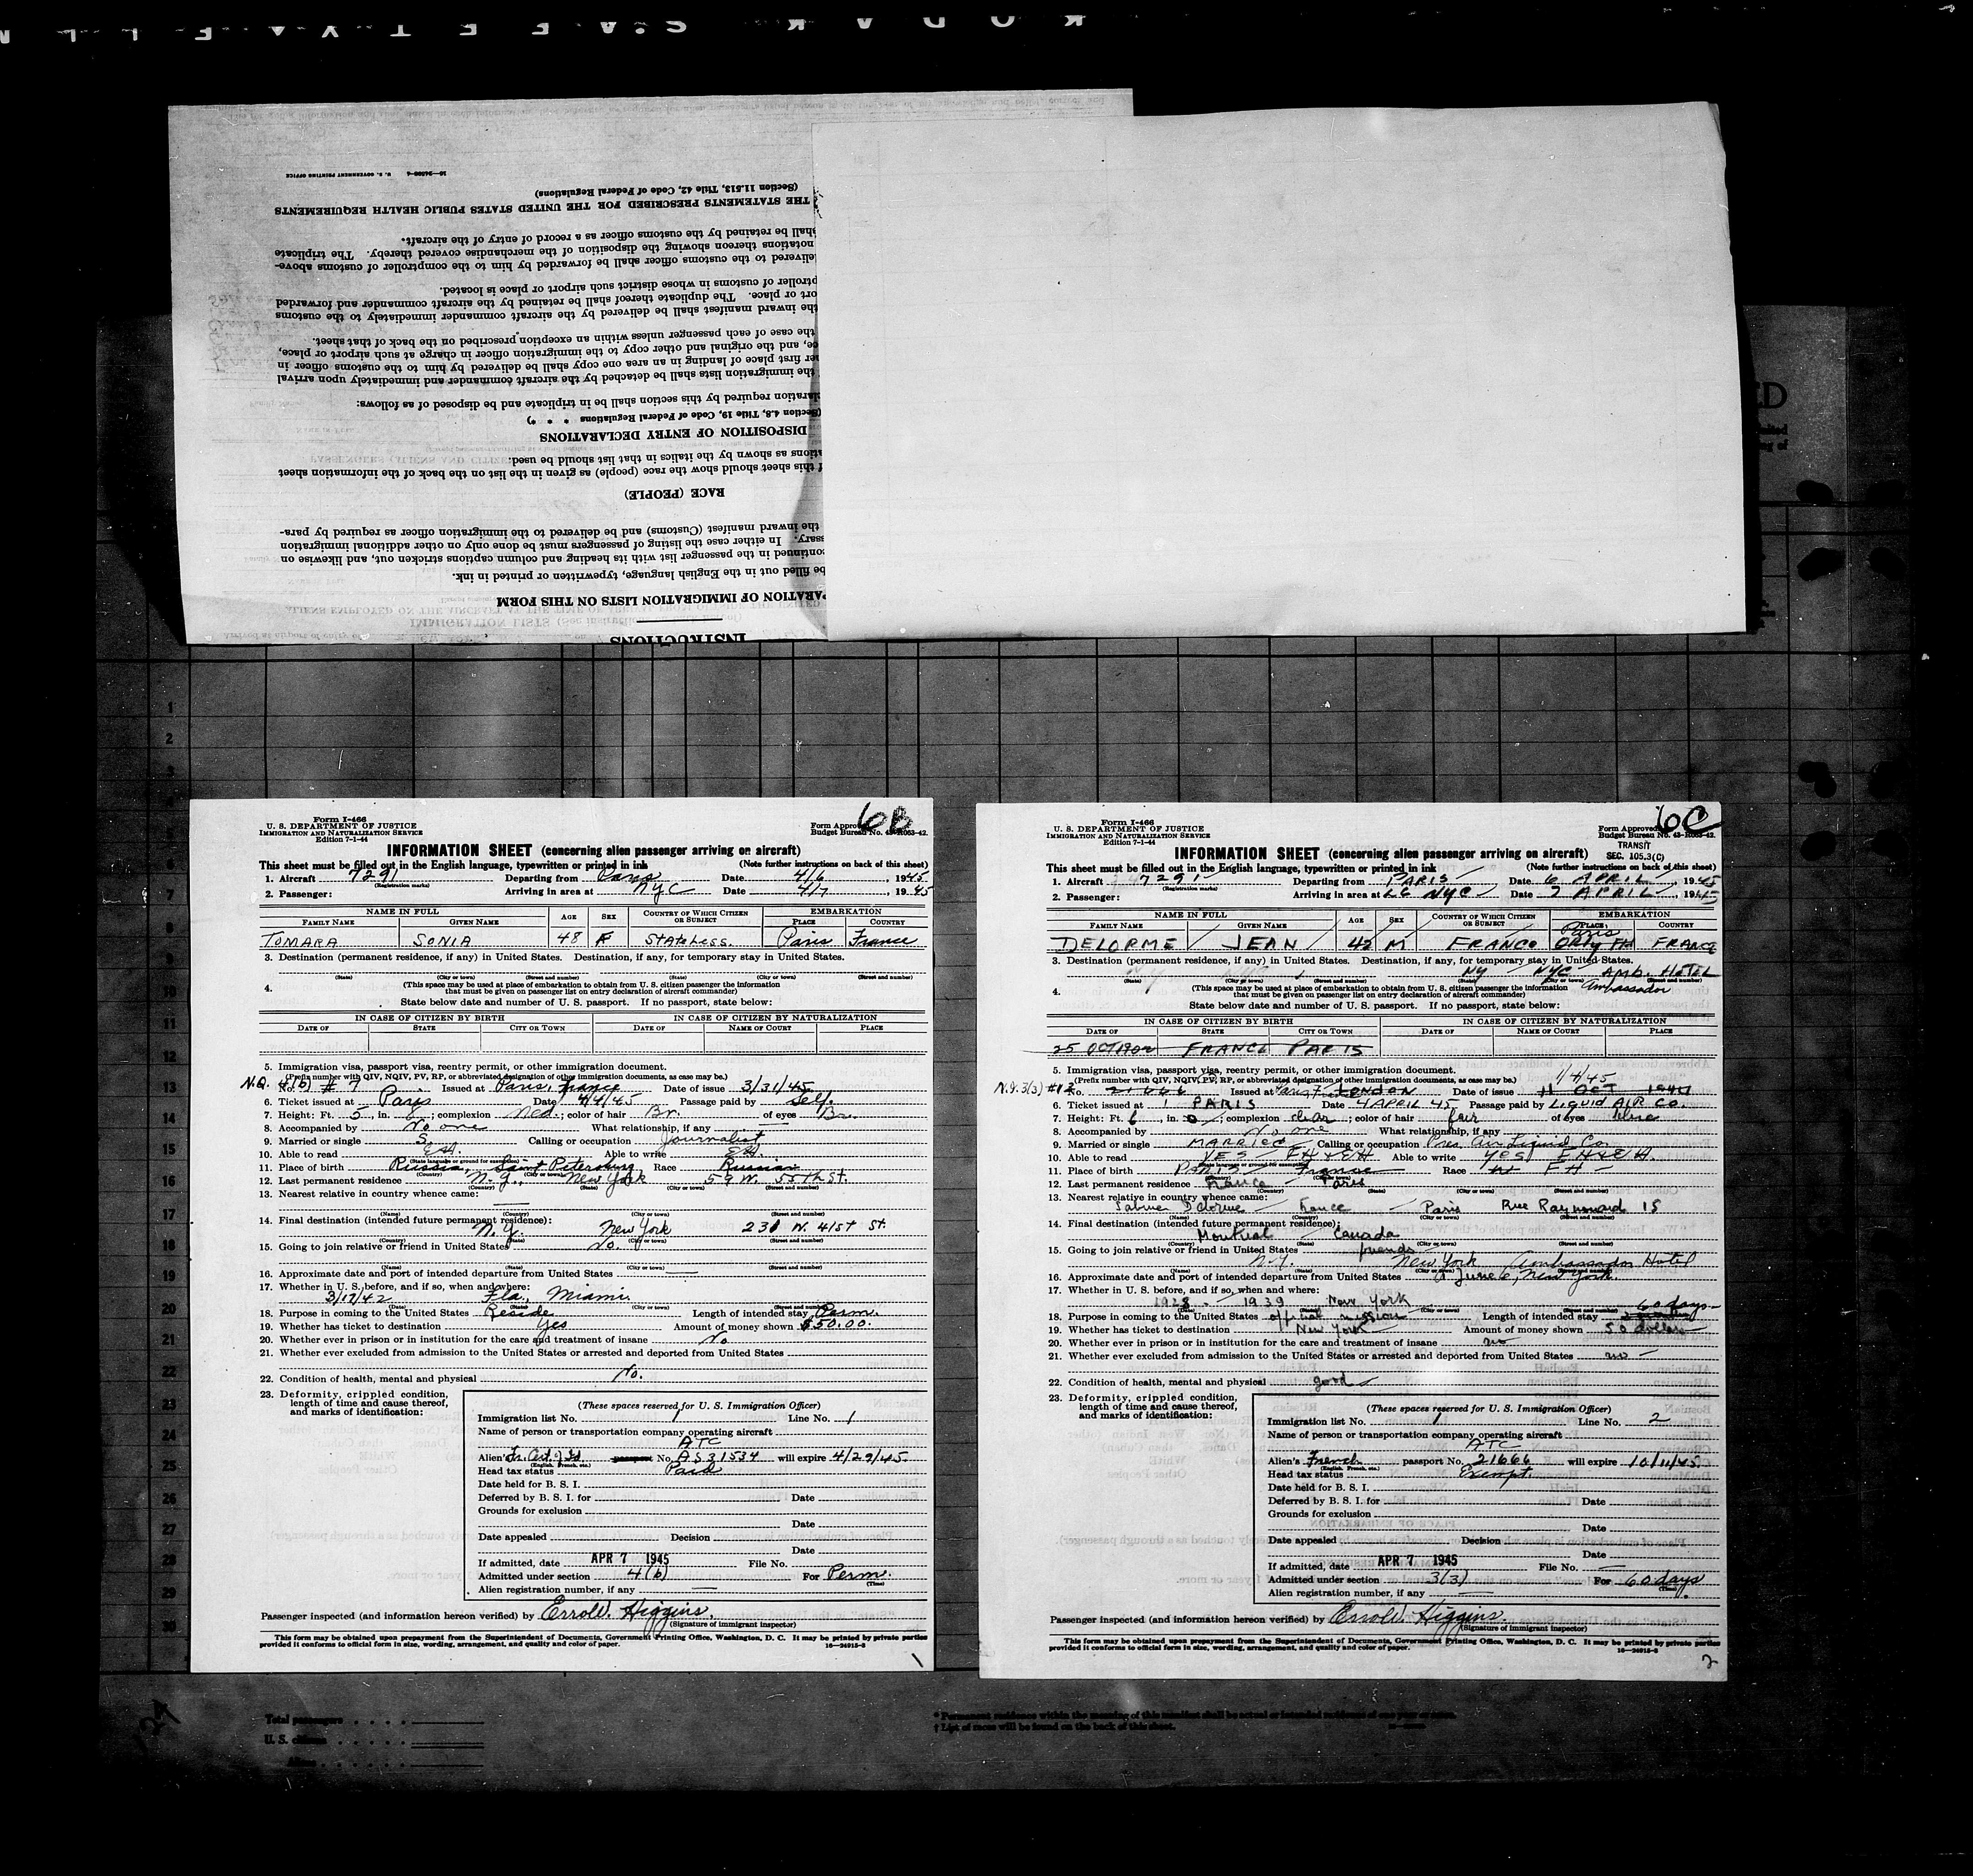 KODAK SAFETY FILM
16—24500-4 U. S. GOVERNMENT PRINTING OFFICE
(Section 11.513, Title 42, Code of Federal Regulations)
THE STATEMENTS PRESCRIBED FOR THE UNITED STATES PUBLIC HEALTH REQUIREMENTS
shall be retained by the customs officer as a record of entry of the aircraft.
notations thereon showing the disposition of the merchandise covered thereby. The triplicate
delivered to the customs officer shall be forwarded by him to the comptroller of customs above-
ptroller of customs in whose district such airport or place is located.
ort or place. The duplicate thereof shall be retained by the aircraft commander and forwarded
the inward manifest shall be delivered by the aircraft commander immediately to the customs
the case of each passenger unless within an exception prescribed on the back of that sheet.
ce, and the original and other copy to the immigration officer in charge at such airport or place,
her first place of landing in an area one copy shall be delivered by him to the customs officer in
the immigration lists shall be detached by the aircraft commander and immediately upon arrival
laration required by this section shall be in triplicate and be disposed of as follows:
(Section 4.8, Title 19, Code of Federal Regulations * * *)
DISPOSITION OF ENTRY DECLARATIONS
ations as shown by the italics in that list should be used.
f this sheet should show the race (people) as given in the list on the back of the information sheet
RACE (PEOPLE)
the inward manifest (Customs) and be delivered to the immigration officer as required by para-
ssary. In either case the listing of passengers must be done only on other additional immigration
continued in the passenger list with its heading and column captions stricken out, and likewise on
be filled out in the English language, typewritten or printed in ink.
PARATION OF IMMIGRATION LISTS ON THIS FORM
INSTRUCTIONS
6B
Form I-466
U. S. DEPARTMENT OF JUSTICE
IMMIGRATION AND NATURALIZATION SERVICE
Edition 7-1-44
Form Approved
Budget Bureau No. 43-R063-42.
INFORMATION SHEET (concerning alien passenger arriving on aircraft)
This sheet must be filled out in the English language, typewritten or printed in ink (Note further instructions on back of this sheet)
1. Aircraft 7291 Departing from Paris Date 4/6, 1945
(Registration marks)
2. Passenger: Arriving in area at NYC Date 4/7, 1945
NAME IN FULL AGE SEX COUNTRY OF WHICH CITIZEN OR SUBJECT EMBARKATION
FAMILY NAME GIVEN NAME PLACE COUNTRY
TOMARA SONIA 48 F Stateless. Paris France
3. Destination (permanent residence, if any) in United States. Destination, if any, for temporary stay in United States.
(State) (City or town) (Street and number) (State) (City or town) (Street and number)
4. (This space may be used at place of embarkation to obtain from U. S. citizen passenger the information
that must be given on passenger list on entry declaration of aircraft commander)
State below date and number of U. S. passport. If no passport, state below:
IN CASE OF CITIZEN BY BIRTH IN CASE OF CITIZEN BY NATURALIZATION
DATE OF STATE CITY OR TOWN DATE OF NAME OF COURT PLACE
5. Immigration visa, passport visa, reentry permit, or other immigration document.
(Prefix number with QIV, NQIV, PV, RP, or abbreviated designation of other immigration documents, as case may be.)
N.Q. 4(b) No. # 7 Issued at Paris, France Date of issue 3/31/45
6. Ticket issued at Paris Date 4/4/45 Passage paid by Self.
7. Height: Ft. 5, in. 8; complexion Med.; color of hair Br. of eyes Br.
8. Accompanied by No one What relationship, if any —
9. Married or single S. Calling or occupation Journalist
10. Able to read Able to write
(State language or ground for exemption)
11. Place of birth Russia, Saint Petersburg Race Russian
12. Last permanent residence N.Y., New York 59 W. 55th St.
(Country) (State) (City or town) (Street and number)
13. Nearest relative in country whence came: —
(Name) (Country) (City or town) (Street and number)
14. Final destination (intended future permanent residence): N.Y. New York 230 W. 41st St.
(Country) (State) (City or town) (Street and number)
15. Going to join relative or friend in United States No.
(Name) (State) (City or town) (Street and number)
16. Approximate date and port of intended departure from United States —
17. Whether in U. S. before, and if so, when and where:
3/17/42 Fla., Miami
(Date) (State) (City or town) (Street and number)
18. Purpose in coming to the United States Reside Length of intended stay Perm.
19. Whether has ticket to destination Yes Amount of money shown $50.00.
20. Whether ever in prison or in institution for the care and treatment of insane No.
21. Whether ever excluded from admission to the United States or arrested and deported from United States
No.
22. Condition of health, mental and physical
23. Deformity, crippled condition,
length of time and cause thereof,
and marks of identification:
(These spaces reserved for U. S. Immigration Officer)
Immigration list No. 1 Line No. 1
Name of person or transportation company operating aircraft
ATC
Alien's passport No. AS31534 will expire 4/29/45.
(English, French, etc.)
Head tax status Paid
Date held for B. S. I.
Deferred by B. S. I. for Date
Grounds for exclusion
Date
Date appealed Decision
Date
If admitted, date APR 7 1945 File No.
Admitted under section 4(b) For Perm.
(Time)
Alien registration number, if any —
Passenger inspected (and information hereon verified) by Errol W. Higgins.
(Signature of immigrant inspector)
This form may be obtained upon prepayment from the Superintendent of Documents, Government Printing Office, Washington, D. C. It may be printed by private parties
provided it conforms to official form in size, wording, arrangement, and quality and color of paper. 16—24915-2
1
6C
Form I-466
U. S. DEPARTMENT OF JUSTICE
IMMIGRATION AND NATURALIZATION SERVICE
Edition 7-1-44
Form Approved
Budget Bureau No. 43-R063-42.
TRANSIT
SEC. 105.3(C)
INFORMATION SHEET (concerning alien passenger arriving on aircraft)
This sheet must be filled out in the English language, typewritten or printed in ink (Note further instructions on back of this sheet)
1. Aircraft 7291 Departing from PARIS Date 6 APRIL, 1945
(Registration marks)
2. Passenger: Arriving in area at LG NYC Date 7 APRIL, 1945
NAME IN FULL AGE SEX COUNTRY OF WHICH CITIZEN OR SUBJECT EMBARKATION
FAMILY NAME GIVEN NAME PLACE COUNTRY
Paris
DELORME JEAN 42 M FRANCE Orly FRANCE
3. Destination (permanent residence, if any) in United States. Destination, if any, for temporary stay in United States.
NY NYC Amb. HOTEL
(State) (City or town) (Street and number) (State) (City or town) (Street and number)
Ambassador
4. (This space may be used at place of embarkation to obtain from U. S. citizen passenger the information
that must be given on passenger list on entry declaration of aircraft commander)
State below date and number of U. S. passport. If no passport, state below:
IN CASE OF CITIZEN BY BIRTH IN CASE OF CITIZEN BY NATURALIZATION
DATE OF STATE CITY OR TOWN DATE OF NAME OF COURT PLACE
25 OCT 1902 FRANCE PARIS
5. Immigration visa, passport visa, reentry permit, or other immigration document.
(Prefix number with QIV, NQIV, PV, RP, or abbreviated designation of other immigration documents, as case may be.)
No. 21666 Issued at LONDON Date of issue 11 OCT
6. Ticket issued at PARIS Date 4 APRIL 45 Passage paid by Liquid AIR CO.
7. Height: Ft. 6, in. 0; complexion clear; color of hair fair of eyes blue
8. Accompanied by No one What relationship, if any
9. Married or single MARRIED Calling or occupation Pres. Air Liquid Co.
10. Able to read YES Able to write YES
(State language or ground for exemption)
11. Place of birth PARIS France Race
12. Last permanent residence France Paris
(Country) (State) (City or town) (Street and number)
13. Nearest relative in country whence came:
Sabine Delorme France Paris Rue Raynouard 15
(Name) (Country) (City or town) (Street and number)
14. Final destination (intended future permanent residence):
Montreal Canada
(Country) (State) (City or town) (Street and number)
15. Going to join relative or friend in United States friends
N.Y. New York Ambassador Hotel
(Name) (State) (City or town) (Street and number)
16. Approximate date and port of intended departure from United States June 6, New York.
17. Whether in U. S. before, and if so, when and where:
1928 - 1939 New York
(Date) (State) (City or town) (Street and number)
60 days
18. Purpose in coming to the United States official mission Length of intended stay
19. Whether has ticket to destination New York Amount of money shown 50 dollars
20. Whether ever in prison or in institution for the care and treatment of insane no
21. Whether ever excluded from admission to the United States or arrested and deported from United States no
22. Condition of health, mental and physical good
23. Deformity, crippled condition,
length of time and cause thereof,
and marks of identification:
(These spaces reserved for U. S. Immigration Officer)
Immigration list No. 1 Line No. 2
Name of person or transportation company operating aircraft
ATC
Alien's French passport No. 21666 will expire 10/11/45.
(English, French, etc.)
Head tax status Exempt.
Date held for B. S. I.
Deferred by B. S. I. for Date
Grounds for exclusion
Date
Date appealed Decision
Date
If admitted, date APR 7 1945 File No. —
Admitted under section 3(3) For 60 days
(Time)
Alien registration number, if any —
Passenger inspected (and information hereon verified) by Errol W. Higgins.
(Signature of immigrant inspector)
This form may be obtained upon prepayment from the Superintendent of Documents, Government Printing Office, Washington, D. C. It may be printed by private parties
provided it conforms to official form in size, wording, arrangement, and quality and color of paper. 16—24915-2
2
Total passengers
U. S. citizens
Aliens
* Permanent residence within the meaning of this manifest shall be actual or intended residence of one year or more.
† List of races will be found on the back of this sheet.